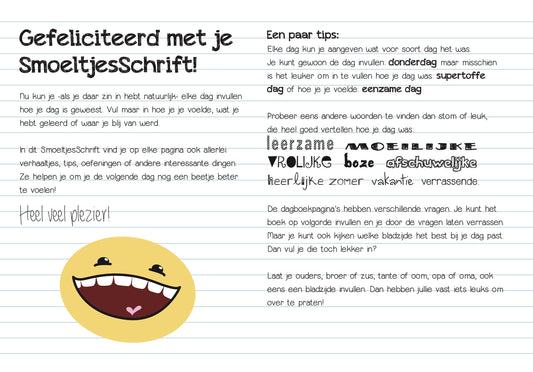 Gefeliciteerd met je
SmoeltjesSchrift!
Nu kun je -als je daar zin in hebt natuurlijk- elke dag invullen
hoe je dag is geweest. Vul maar in hoe je je voelde, wat je
hebt geleerd of waar je blij van werd.
In dit SmoeltjesSchrift vind je op elke pagina ook allerlei
verhaaltjes, tips, oefeningen of andere interessante dingen.
Ze helpen je om je de volgende dag nog een beetje beter
te voelen!
Heel veel plezier!
Een paar tips:
Elke dag kun je aangeven wat voor soort dag het was.
Je kunt gewoon de dag invullen: donderdag maar misschien
is het leuker om in te vullen hoe je dag was: supertoffe
dag of hoe je je voelde: eenzame dag
Probeer eens andere woorden te vinden dan stom of leuk,
die heel goed vertellen hoe je dag was:
leerzame MOEILIJKE
VROLIJKE boze afschuwelijke
heerlijke zomer vakantie verrassende.
De dagboekpagina's hebben verschillende vragen. Je kunt het
boek op volgorde invullen en je door de vragen laten verrassen.
Maar je kunt ook kijken welke bladzijde het best bij je dag past.
Dan vul je die toch lekker in?
Laat je ouders, broer of zus, tante of oom, opa of oma, ook
eens een bladzijde invullen. Dan hebben jullie vast iets leuks om
over te praten!